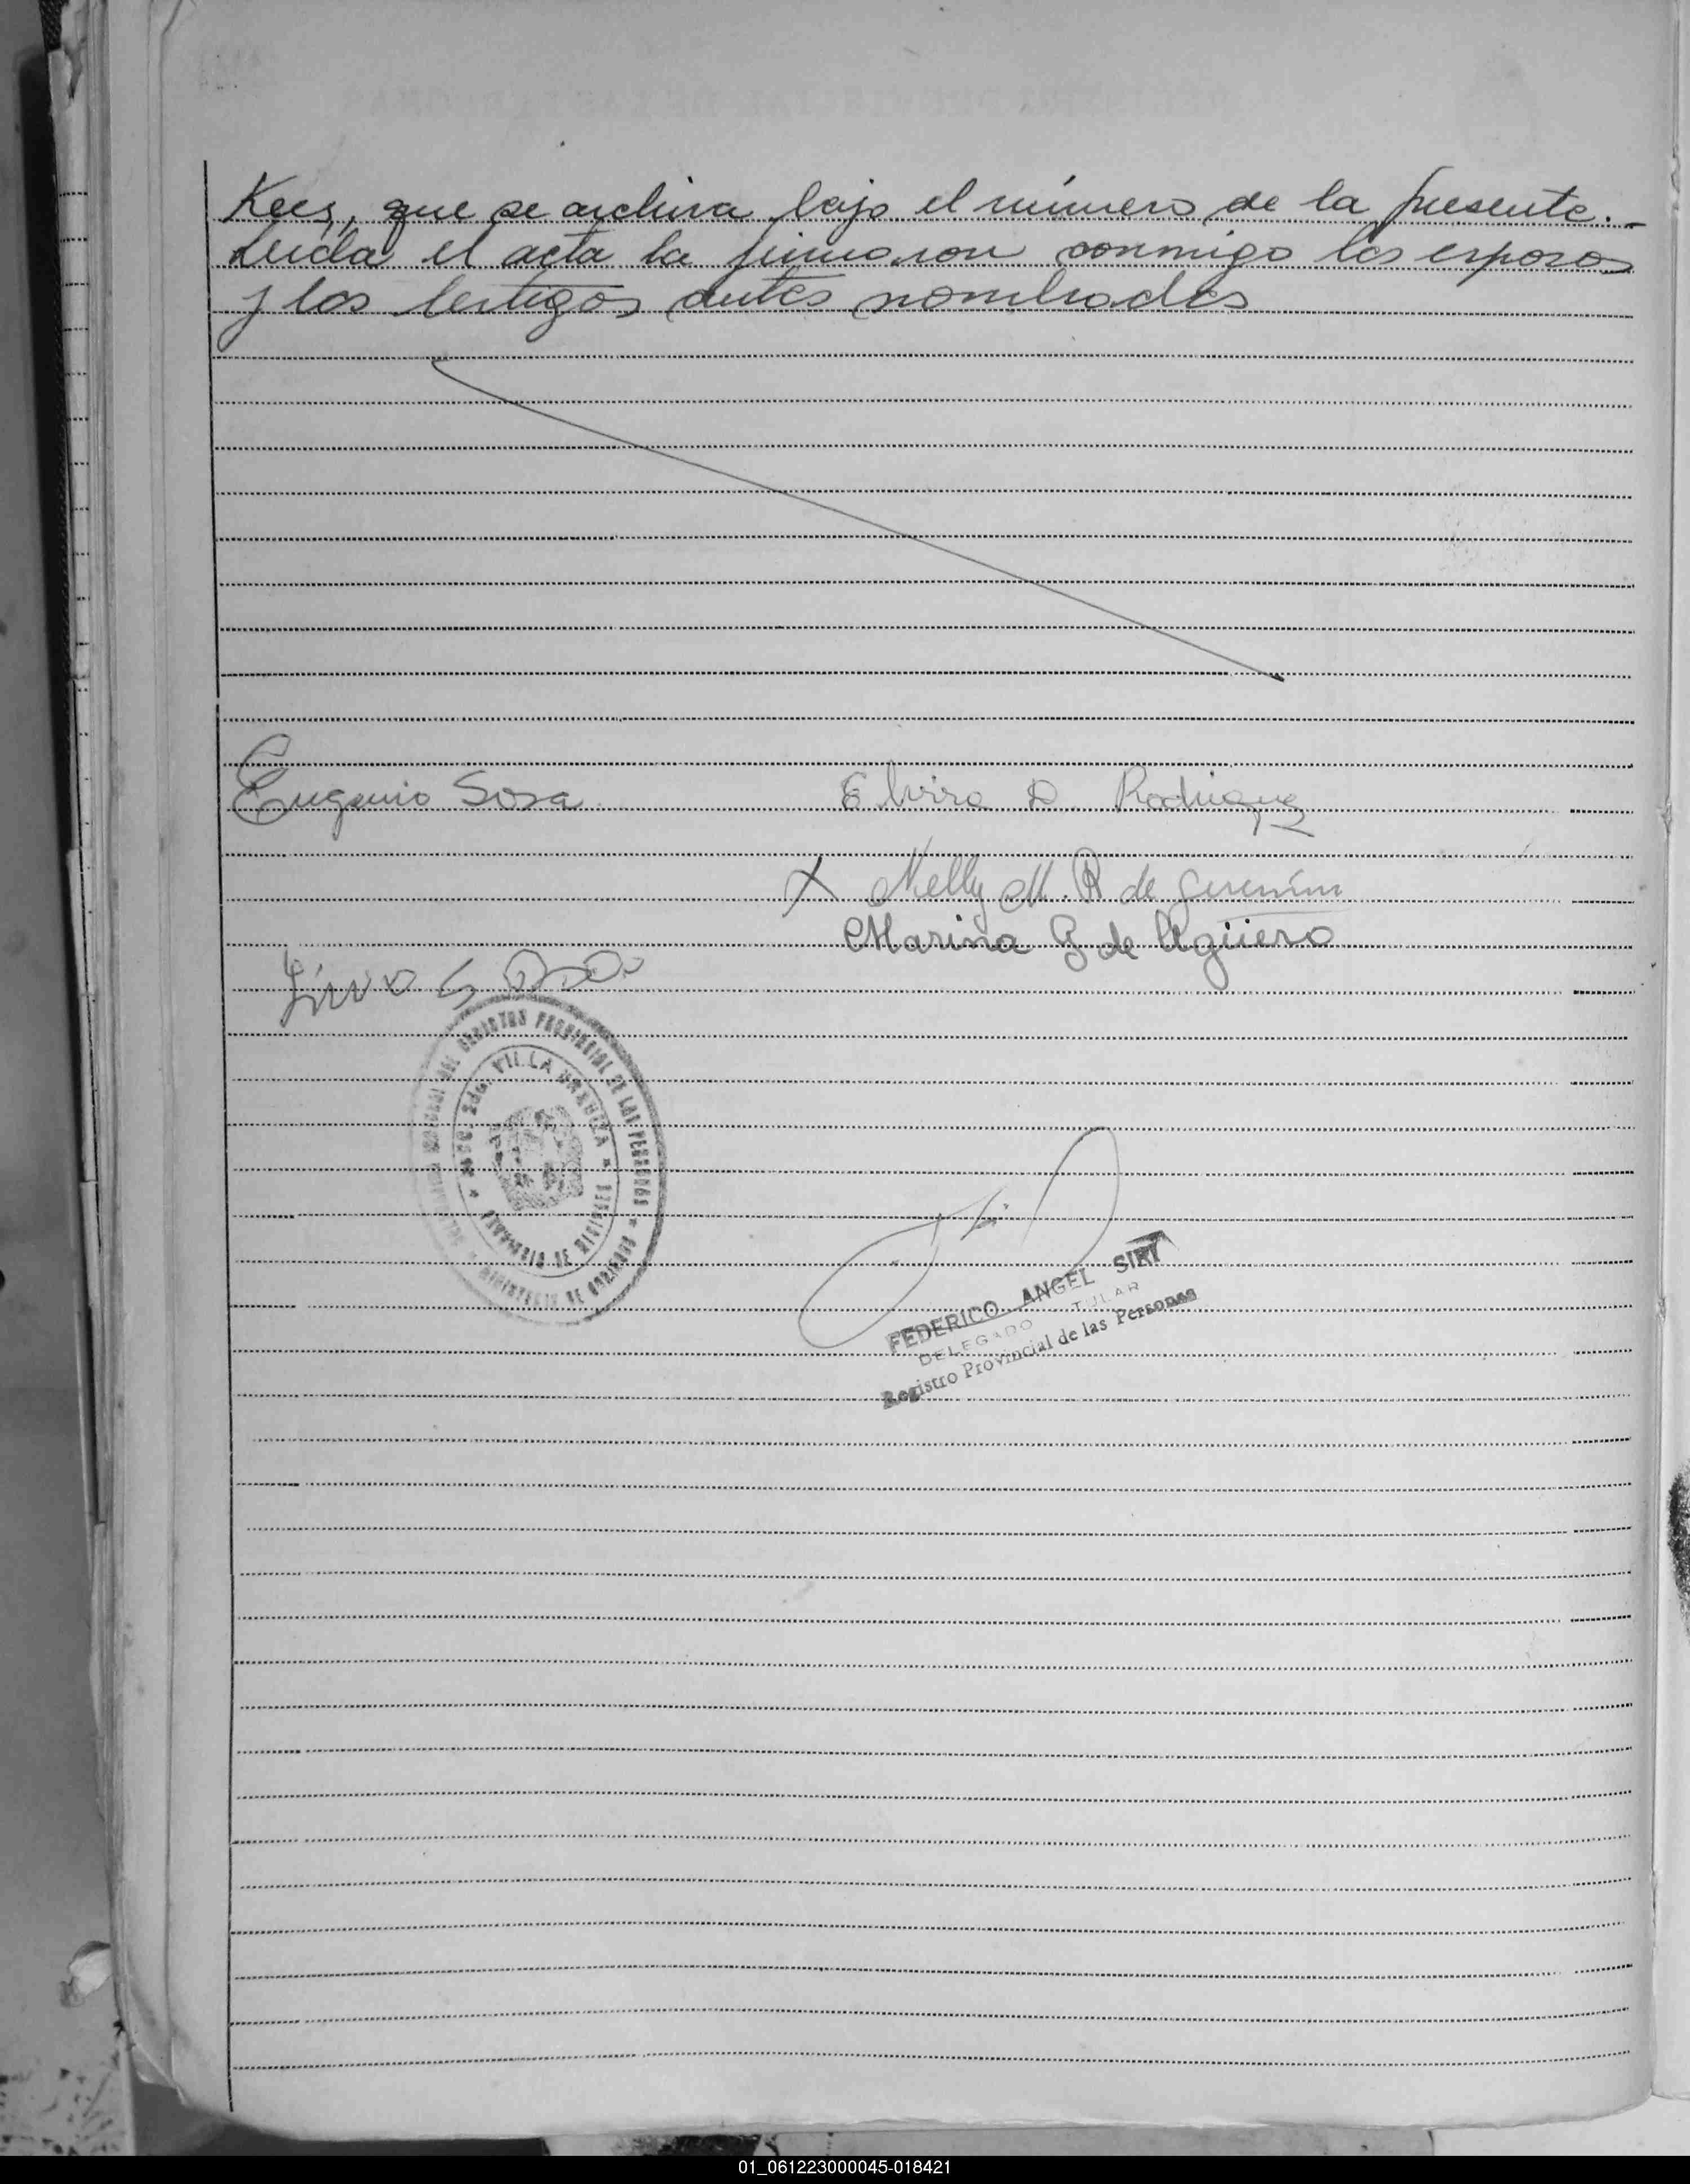 Kees, que se archiva bajo el número de la presente.-
Leída el acta la firmaron conmigo los esposos
y los testigos antes nombrados
Eugenio Sosa
Elvira D. Rodriguez
X Nelly M. R de
Marina G de Agüero
VILLA URQUIZA
REGISTRO PROVINCIAL DE LAS PERSONAS
FEDERICO ANGEL SIRI
DELEGADO TITULAR
Registro Provincial de las Personas
01_061223000045-018421